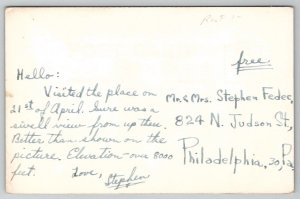 free.
Hello:
Visited the place on
21st of April. Sure was a
swell view from up there.
Better than shown on the
picture. Elevation-over 8000
feet.
Love,
Stephen
Mr. & Mrs. Stephen Feder,
824 N. Judson St.,
Philadelphia, 30, Pa.